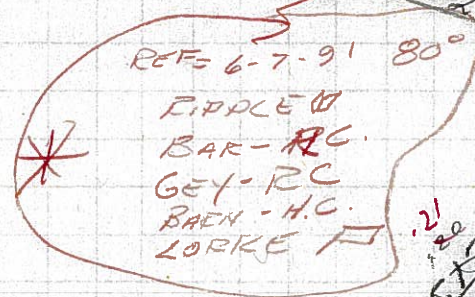 REF= 6-7-91 80°
RIDDLE
BAR - RC.
GEY - RC
BAEN - H.C.
LORKE
.21